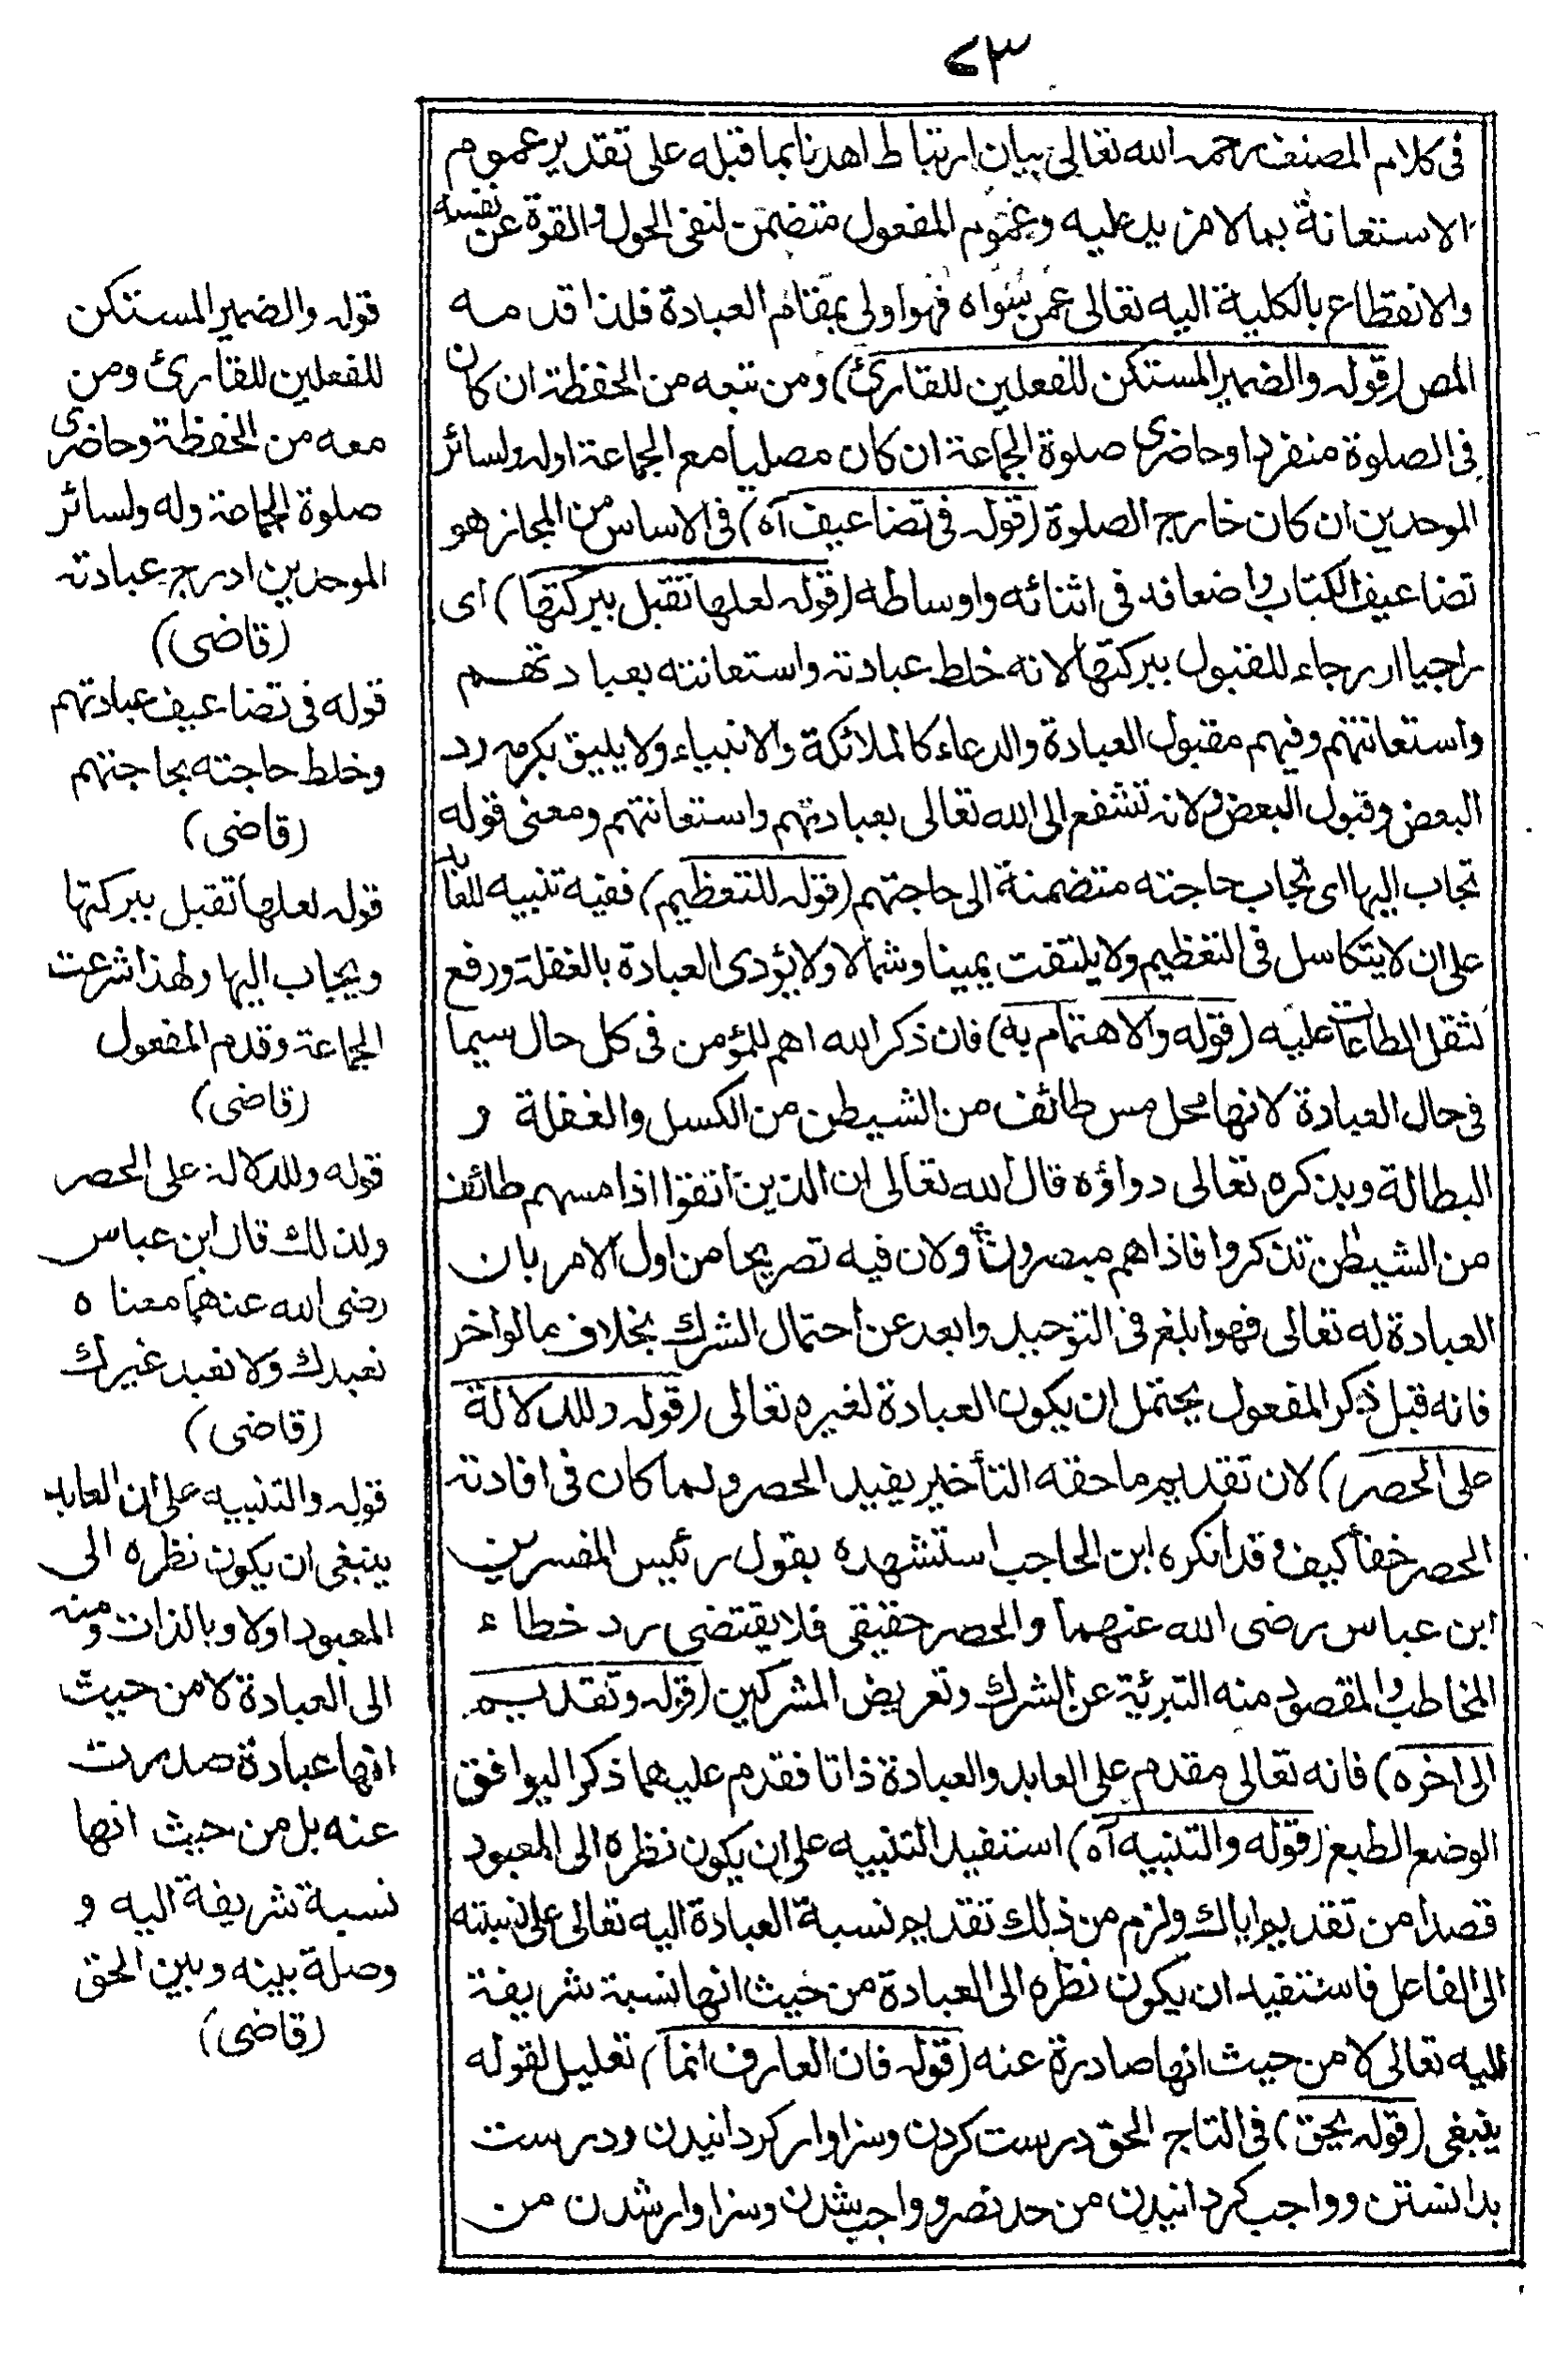 ٧٣
فى كلام المصنف رحمه الله تعالى بيان ارتباط اهدنا بما قبله على تقدير عموم
الاستعانة بما لا مزيد عليه وعموم المفعول متضمن لنفى الحول والقوة عن نفسه
والانقطاع بالكلية اليه تعالى عمن سواه فهو اولى بمقام العبادة فلذا قدمه
المص (قوله والضمير المستكن للفعلين للقارئ) ومن تبعه من الحفظة ان كان
فى الصلوة منفردا وحاضرى صلوة الجماعة ان كان مصليا مع الجماعة اوله ولسائر
الموحدين ان كان خارج الصلوة (قوله فى تضاعيف آه) فى الاساس من المجاز هو
تضاعيف الكتاب واضعافه فى اثنائه واوساطه (قوله لعلها تقبل ببركتها) اى
راجيا ار رجاء للقبول ببركتها لانه خلط عبادته واستعانته بعبادتهم
واستعانتهم وفيهم مقبول العبادة والدعاء كالملائكة والانبياء ولا يليق بكرمه رد
البعض وقبول البعض ولانه تشفع الى الله تعالى بعبادتهم واستعانتهم ومعنى قوله
تجاب اليها اى تجاب حاجته متضمنة الى حاجتهم (قوله للتعظيم) ففيه تنبيه للعابد
على ان لا يتكاسل فى التعظيم ولا يلتفت يمينا وشمالا ولا يؤدى العبادة بالغفلة ورفع
لثقل الطاعات عليه (قوله والاهتمام به) فان ذكر الله اهم للمؤمن فى كل حال سيما
فى حال العبادة لانها محل مس طائف من الشيطن من الكسل والغفلة و
البطالة وبذكره تعالى دواؤه قال الله تعالى ان الذين اتقوا اذا مسهم طائف
من الشيطن تذكروا فاذا هم مبصرون ولان فيه تصريحا من اول الامر بان
العبادة له تعالى فهو ابلغ فى التوحيد وابعد عن احتمال الشرك بخلاف ما لو اخر
فانه قبل ذكر المفعول يحتمل ان يكون العبادة لغيره تعالى (قوله وللدلالة
على الحصر) لان تقديم ما حقه التأخير يفيد الحصر ولما كان فى افادته
الحصر خفأ كيف وقد انكره ابن الحاجب استشهده بقول رئيس المفسرين
ابن عباس رضى الله عنهما والحصر حقيقى فلا يقتضى رد خطاء
المخاطب والمقصود منه التبرئة عن الشرك وتعريض المشركين (قوله وتقديم
الى اخره) فانه تعالى مقدم على العابد والعبادة ذاتا فقدم عليهما ذكرا ليوافق
الوضع الطبع (قوله والتنبيه آه) استفيد التنبيه على ان يكون نظره الى المعبود
قصدا من تقديم اياك ولزم من ذلك تقديم نسبة العبادة اليه تعالى على نسبته
الى الفاعل فاستفيد ان يكون نظره الى العبادة من حيث انها نسبة شريفة
اليه تعالى لا من حيث انها صادرة عنه (قوله فان العارف انما) تعليل لقوله
ينبغى (قوله يحق) فى التاج الحق درست كردن وسزاوار كردانيدن ودرست
بدانستن وواجب كردانيدن من حد نصر وواجب شدن وسزاوار شدن من
قوله والضمير المستكن
للفعلين للقارئ ومن
معه من الحفظة وحاضرى
صلوة الجماعة وله ولسائر
الموحدين ادرج عبادته
(قاضى)
قوله فى تضاعيف عبادتهم
وخلط حاجته بحاجتهم
(قاضى)
قوله لعلها تقبل ببركتها
ويجاب اليها ولهذا شرعت
الجماعة وقدم المفعول
(قاضى)
قوله وللدلالة على الحصر
ولذلك قال ابن عباس
رضى الله عنهما معناه
نعبدك ولا نعبد غيرك
(قاضى)
قوله والتنبيه على ان العابد
ينبغى ان يكون نظره الى
المعبود اولا وبالذات ومنه
الى العبادة لا من حيث
انها عبادة صدرت
عنه بل من حيث انها
نسبة شريفة اليه و
وصلة بينه وبين الحق
(قاضى)